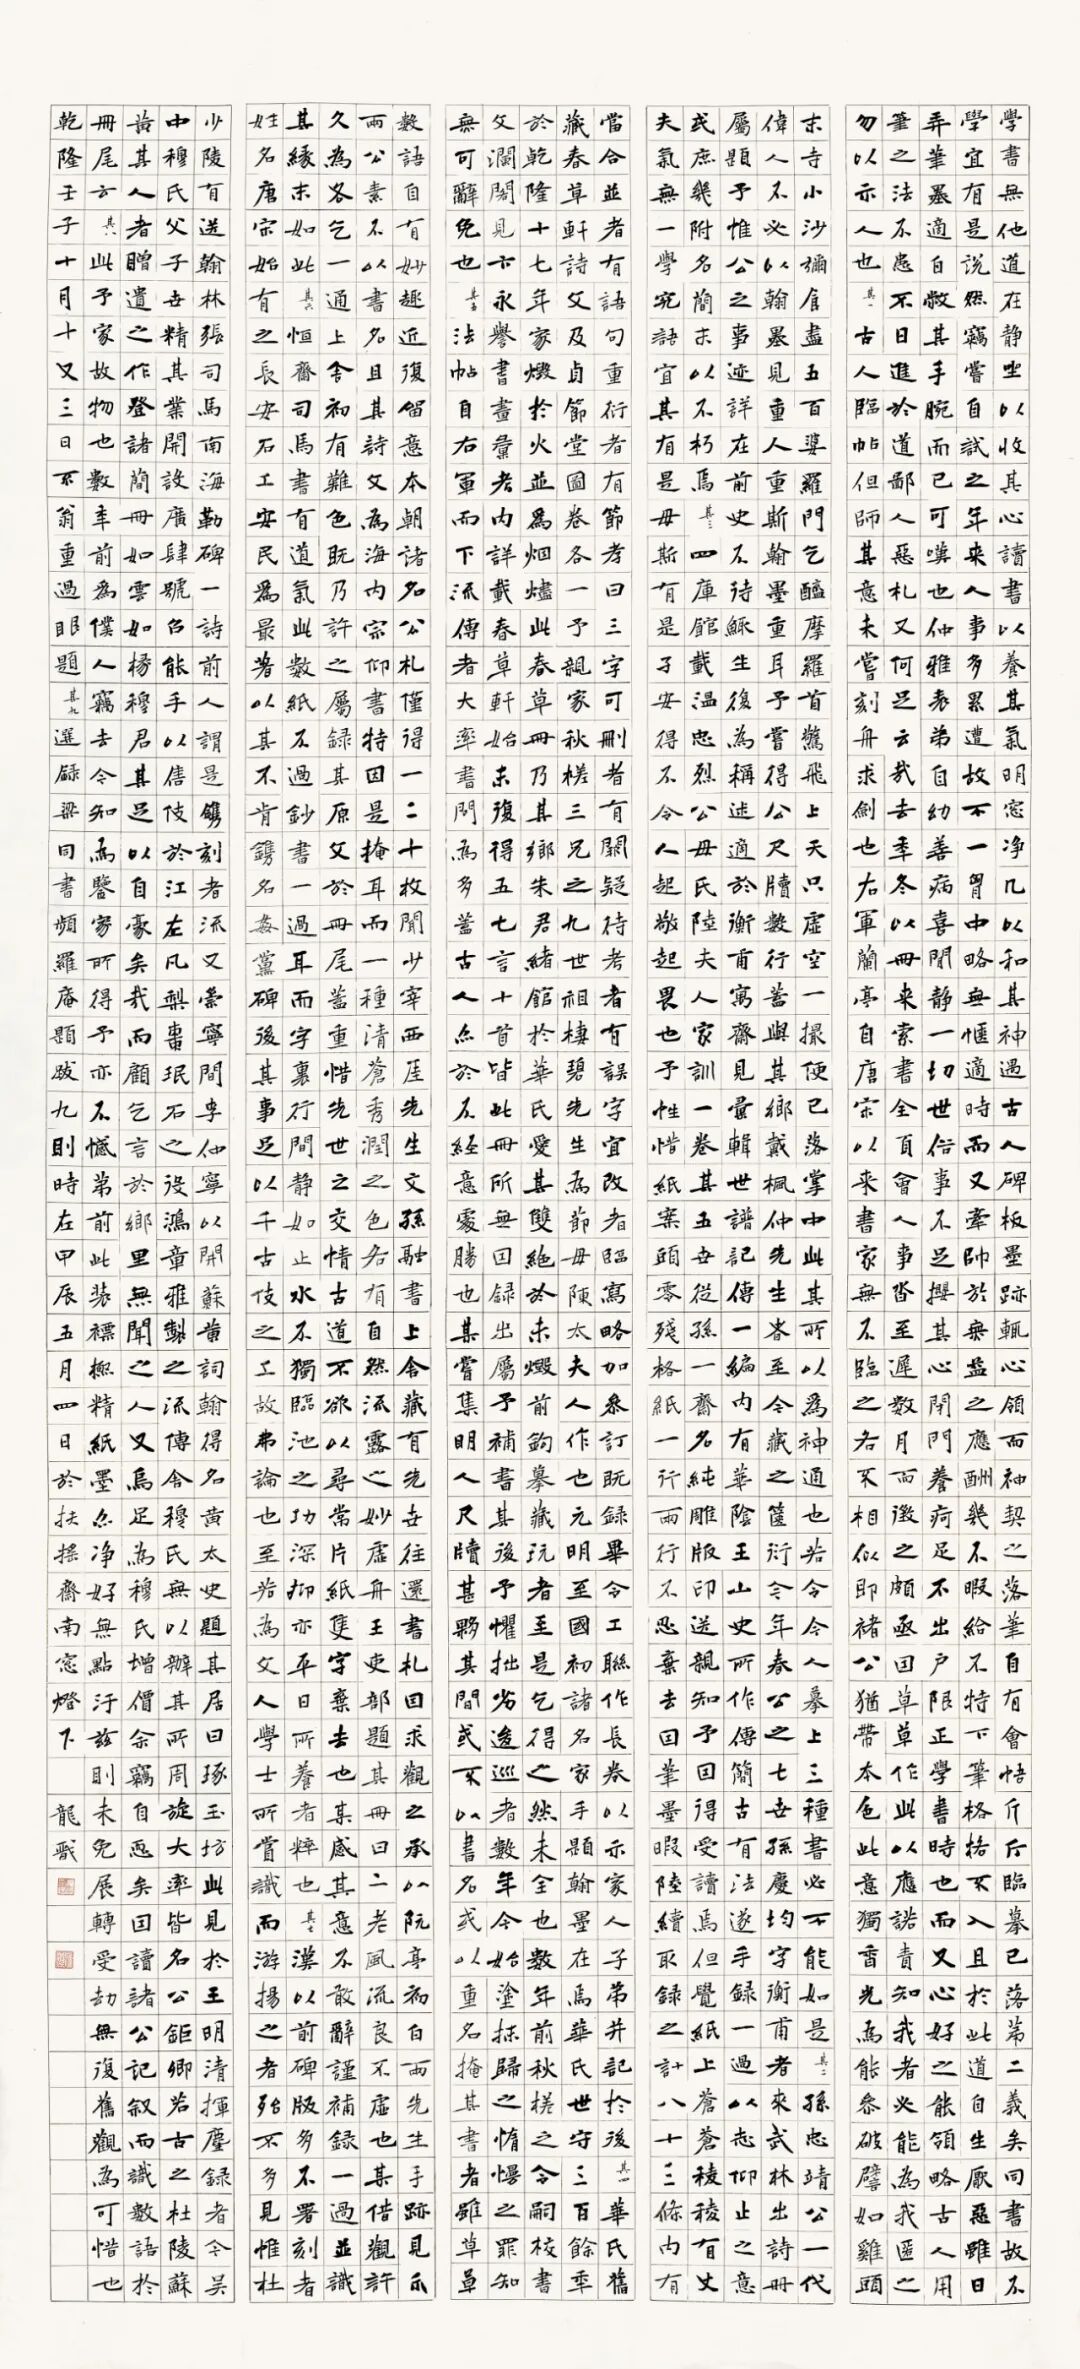 學書無他道在静坐以收其心讀書以養其氣明窓净几以和其神過古人碑板墨跡輒心領而神契之落筆自有會悟斤斤臨摹已落第二義矣同書故不
學宜有是說然竊嘗自試之年来人事多累遭故不一胷中略無愜適時而又牽帥於無益之應酬幾不暇給不特下筆格格不入且於此道自生厭惡雖日
弄筆墨適自敝其手腕而已可嘆也仲雅表弟自幼善病喜閒静一切世俗事不足攖其心閉門養疴足不出户限正學書時也而又心好之能領略古人用
筆之法不患不日進於道鄙人惡札又何足云哉去年冬以冊来索書全頁會人事沓至遲數月而徵之頗亟回草草作此以應諾責知我者必能為我匿之
勿以示人也其一古人臨帖但師其意未嘗刻舟求劍也右軍蘭亭自唐宋以来書家無不臨之右不相似即褚公猶帶本色此意獨香光為能參破譬如雞頭
末寺小沙彌食盡五百婆羅門乞醯摩羅首驚飛上天只虛空一撮便已落掌中此其所以為神通也若令今人摹上三種書必不能如是其二孫忠靖公一代
偉人不必以翰墨見重人重斯翰墨重耳予嘗得公尺牘數行蓋與其鄉戴楓仲先生者至今藏之篋衍今年春公之七世孫慶均字衡甫者來武林出詩冊
屬題予惟公之事迹詳在前史不待穌生後為稱述適於衡甫寓齋見彙輯世譜記傳一編内有華陰王山史所作傳簡古有法遂手録一過以志仰止之意
或庶幾附名簡末以不朽焉其三四庫館載温忠烈公母氏陸夫人家訓一卷其五世從孫一齋名純雕版印送親知予回得受讀焉但覺紙上蒼蒼稜稜有丈
夫氣無一學究語宜其有是母斯有是子安得不令人起敬起畏也予性惜紙案頭零殘格紙一行两行不忍棄去回筆墨暇陸續取録之計八十三條内有
當合並者有語句重衍者有節考曰三字可刪者有闕疑待考者有誤字宜改者臨寫略加參訂既録畢令工聯作長卷以示家人子弟并記於後其四華氏舊
藏春草軒詩文及貞節堂圖卷各一予親家秋槎三兄之九世祖棲碧先生為節母陳太夫人作也元明至國初諸名家手題翰墨在焉華氏世守三百餘年
於乾隆十七年家燬於火並爲烟燼此春草冊乃其鄉朱君緒館於華氏愛其雙絶於未燬前鈎摹藏玩者至是乞得之然未全也數年前秋槎之令嗣校書
文瀾閣見卞永譽書畫彙考内詳載春草軒始末復得五七言十首皆此冊所無回録出屬予補書其後予懼拙劣逡巡者數年今始塗抹歸之惰慢之罪知
無可辭免也其五法帖自右軍而下流傳者大率書問為多蓋古人亦於不經意處勝也某嘗集明人尺牘甚夥其間或不以書名或以重名掩其書者雖草草
數語自有妙趣近復留意本朝諸名公札僅得一二十枚聞少宰西厓先生文孫融書上舍藏有先世往還書札回求觀之承以阮亭初白两先生手跡見示
兩公素不以書名且其詩文為海内宗仰書特因是掩耳而一種清蒼秀潤之色若有自然流露之妙虛舟王吏部題其冊曰二老風流良不虛也某借觀許
久為各乞一通上舍初有難色既乃許之屬録其原文於冊尾蓋重惜先世之交情古道不欲以尋常片紙隻字棄去也某感其意不敢辭謹補録一過並識
其緣末如此其六恒齋司馬書有道氣此數紙不過鈔書一過耳而字裏行間静如止水不獨臨池之功深抑亦平日所養者粹也其七漢以前碑版多不署刻者
姓名唐宋始有之長安石工安民爲最著以其不肯鐫名姦黨碑後其事足以千古伎之工故弗論也至若為文人學士所賞識而游揚之者殆不多見惟杜
少陵有送翰林張司馬南海勒碑一詩前人謂是鐫刻者流又崇寧間李仲寧以開蘇黄詞翰得名黄太史題其居曰琢玉坊此見於王明清揮麈録者今吳
中穆氏父子世精其業開設廣肆號召能手以售伎於江左凡梨棗珉石之役鴻章雅製之流傳舍穆氏無以辦其所周旋大率皆名公鉅卿若古之杜陵蘇
黄其人者贈遺之作登諸簡冊如雲如穆君其足以自豪矣哉而顧乞言於鄉里無聞之人又烏足為穆氏增價余竊自恧矣回讀諸公記叙而識數語於
冊尾方其八此予家故物也數年前為僕人竊去今知為鑒家所得予亦不憾第前此装褾極精紙墨亦净好無點汙兹則未免展轉受劫無復舊觀為可惜也
乾隆壬子十月十又三日不翁重過眼題其九選録梁同書頻羅庵題跋九則時左甲辰五月四日於扶搖齋南窓燈下龍